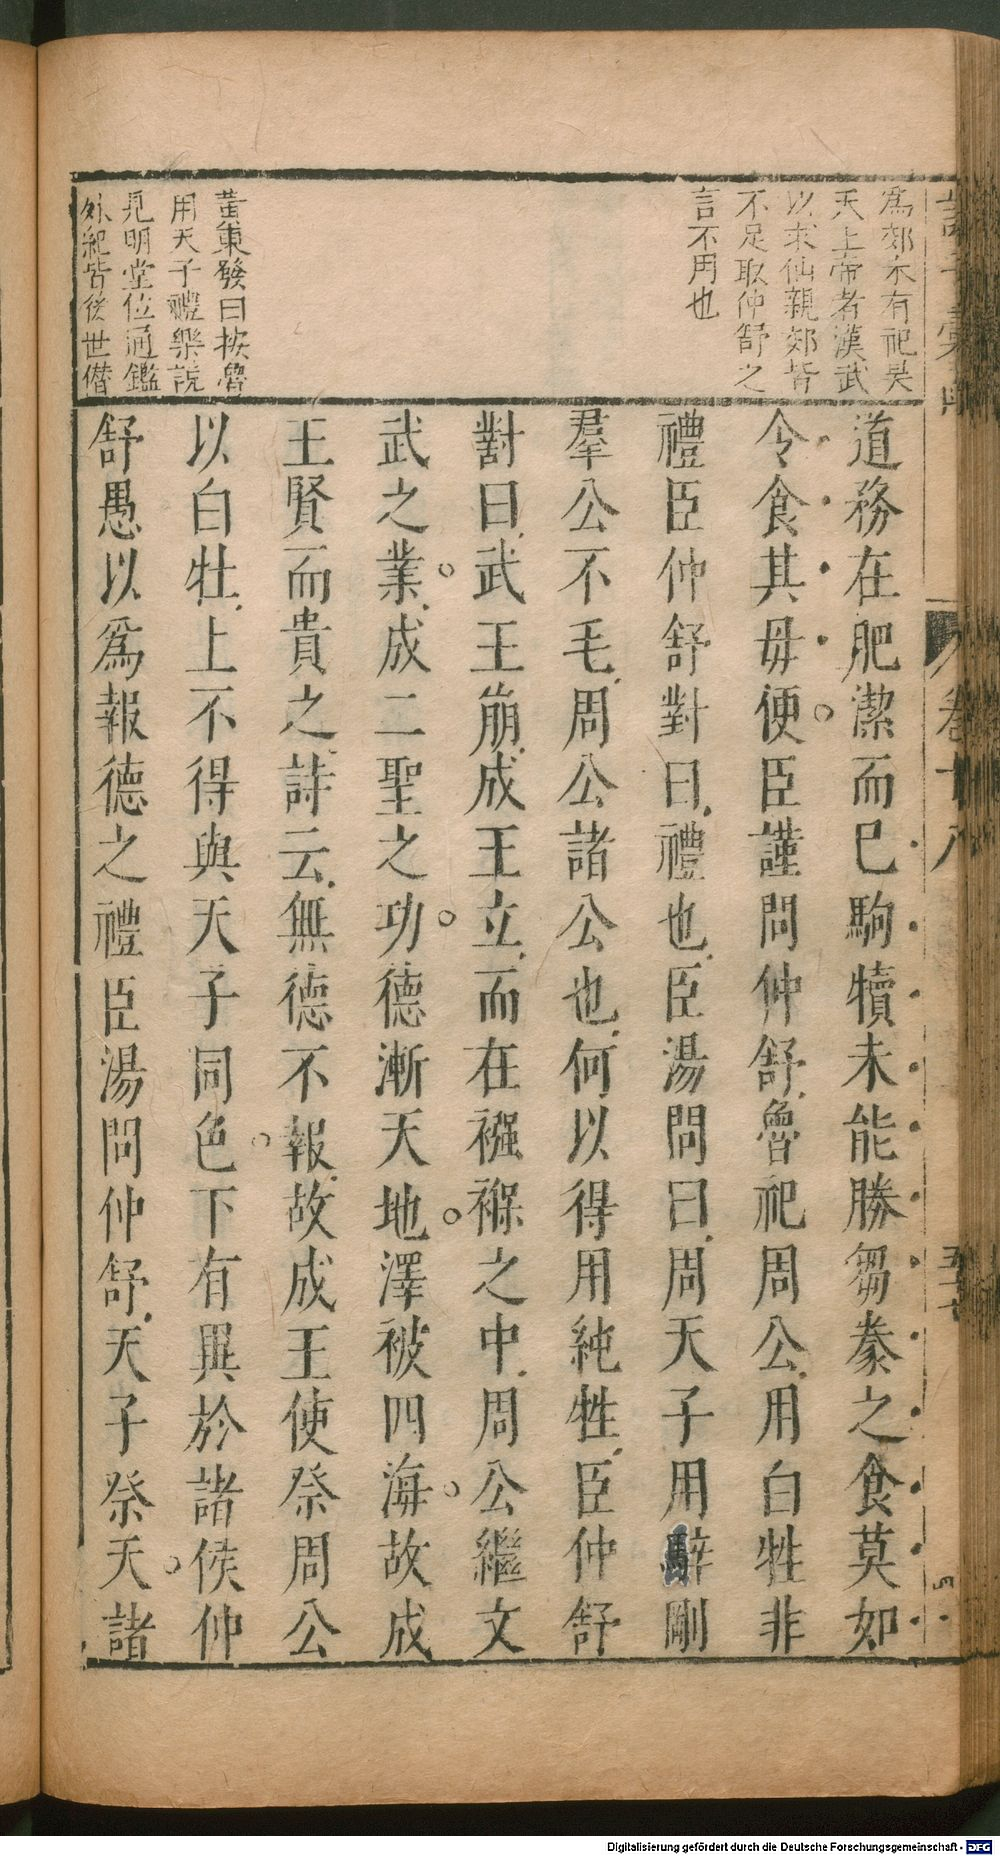 爲郊亦有祀昊
天上帝者漢武
以求仙親郊皆
不足取仲舒之
言不用也
黃東發曰按魯
用天子禮樂說
見明堂位通鑑
外紀皆後世僭
道務在肥潔而已駒犢未能勝芻豢之食莫如
令食其毋便臣謹問仲舒魯祀周公用白牲非
禮臣仲舒對曰禮也臣湯問曰周天子用騂剛
羣公不毛周公諸公也何以得用純牲臣仲舒
對曰武王崩成王立而在襁褓之中周公繼文
武之業成二聖之功德漸天地澤被四海故成
王賢而貴之詩云無德不報故成王使祭周公
以白牡上不得與天子同色下有異於諸侯仲
舒愚以爲報德之禮臣湯問仲舒天子祭天諸
卷十八
五十七
Digitalisierung gefördert durch die Deutsche Forschungsgemeinschaft - DFG